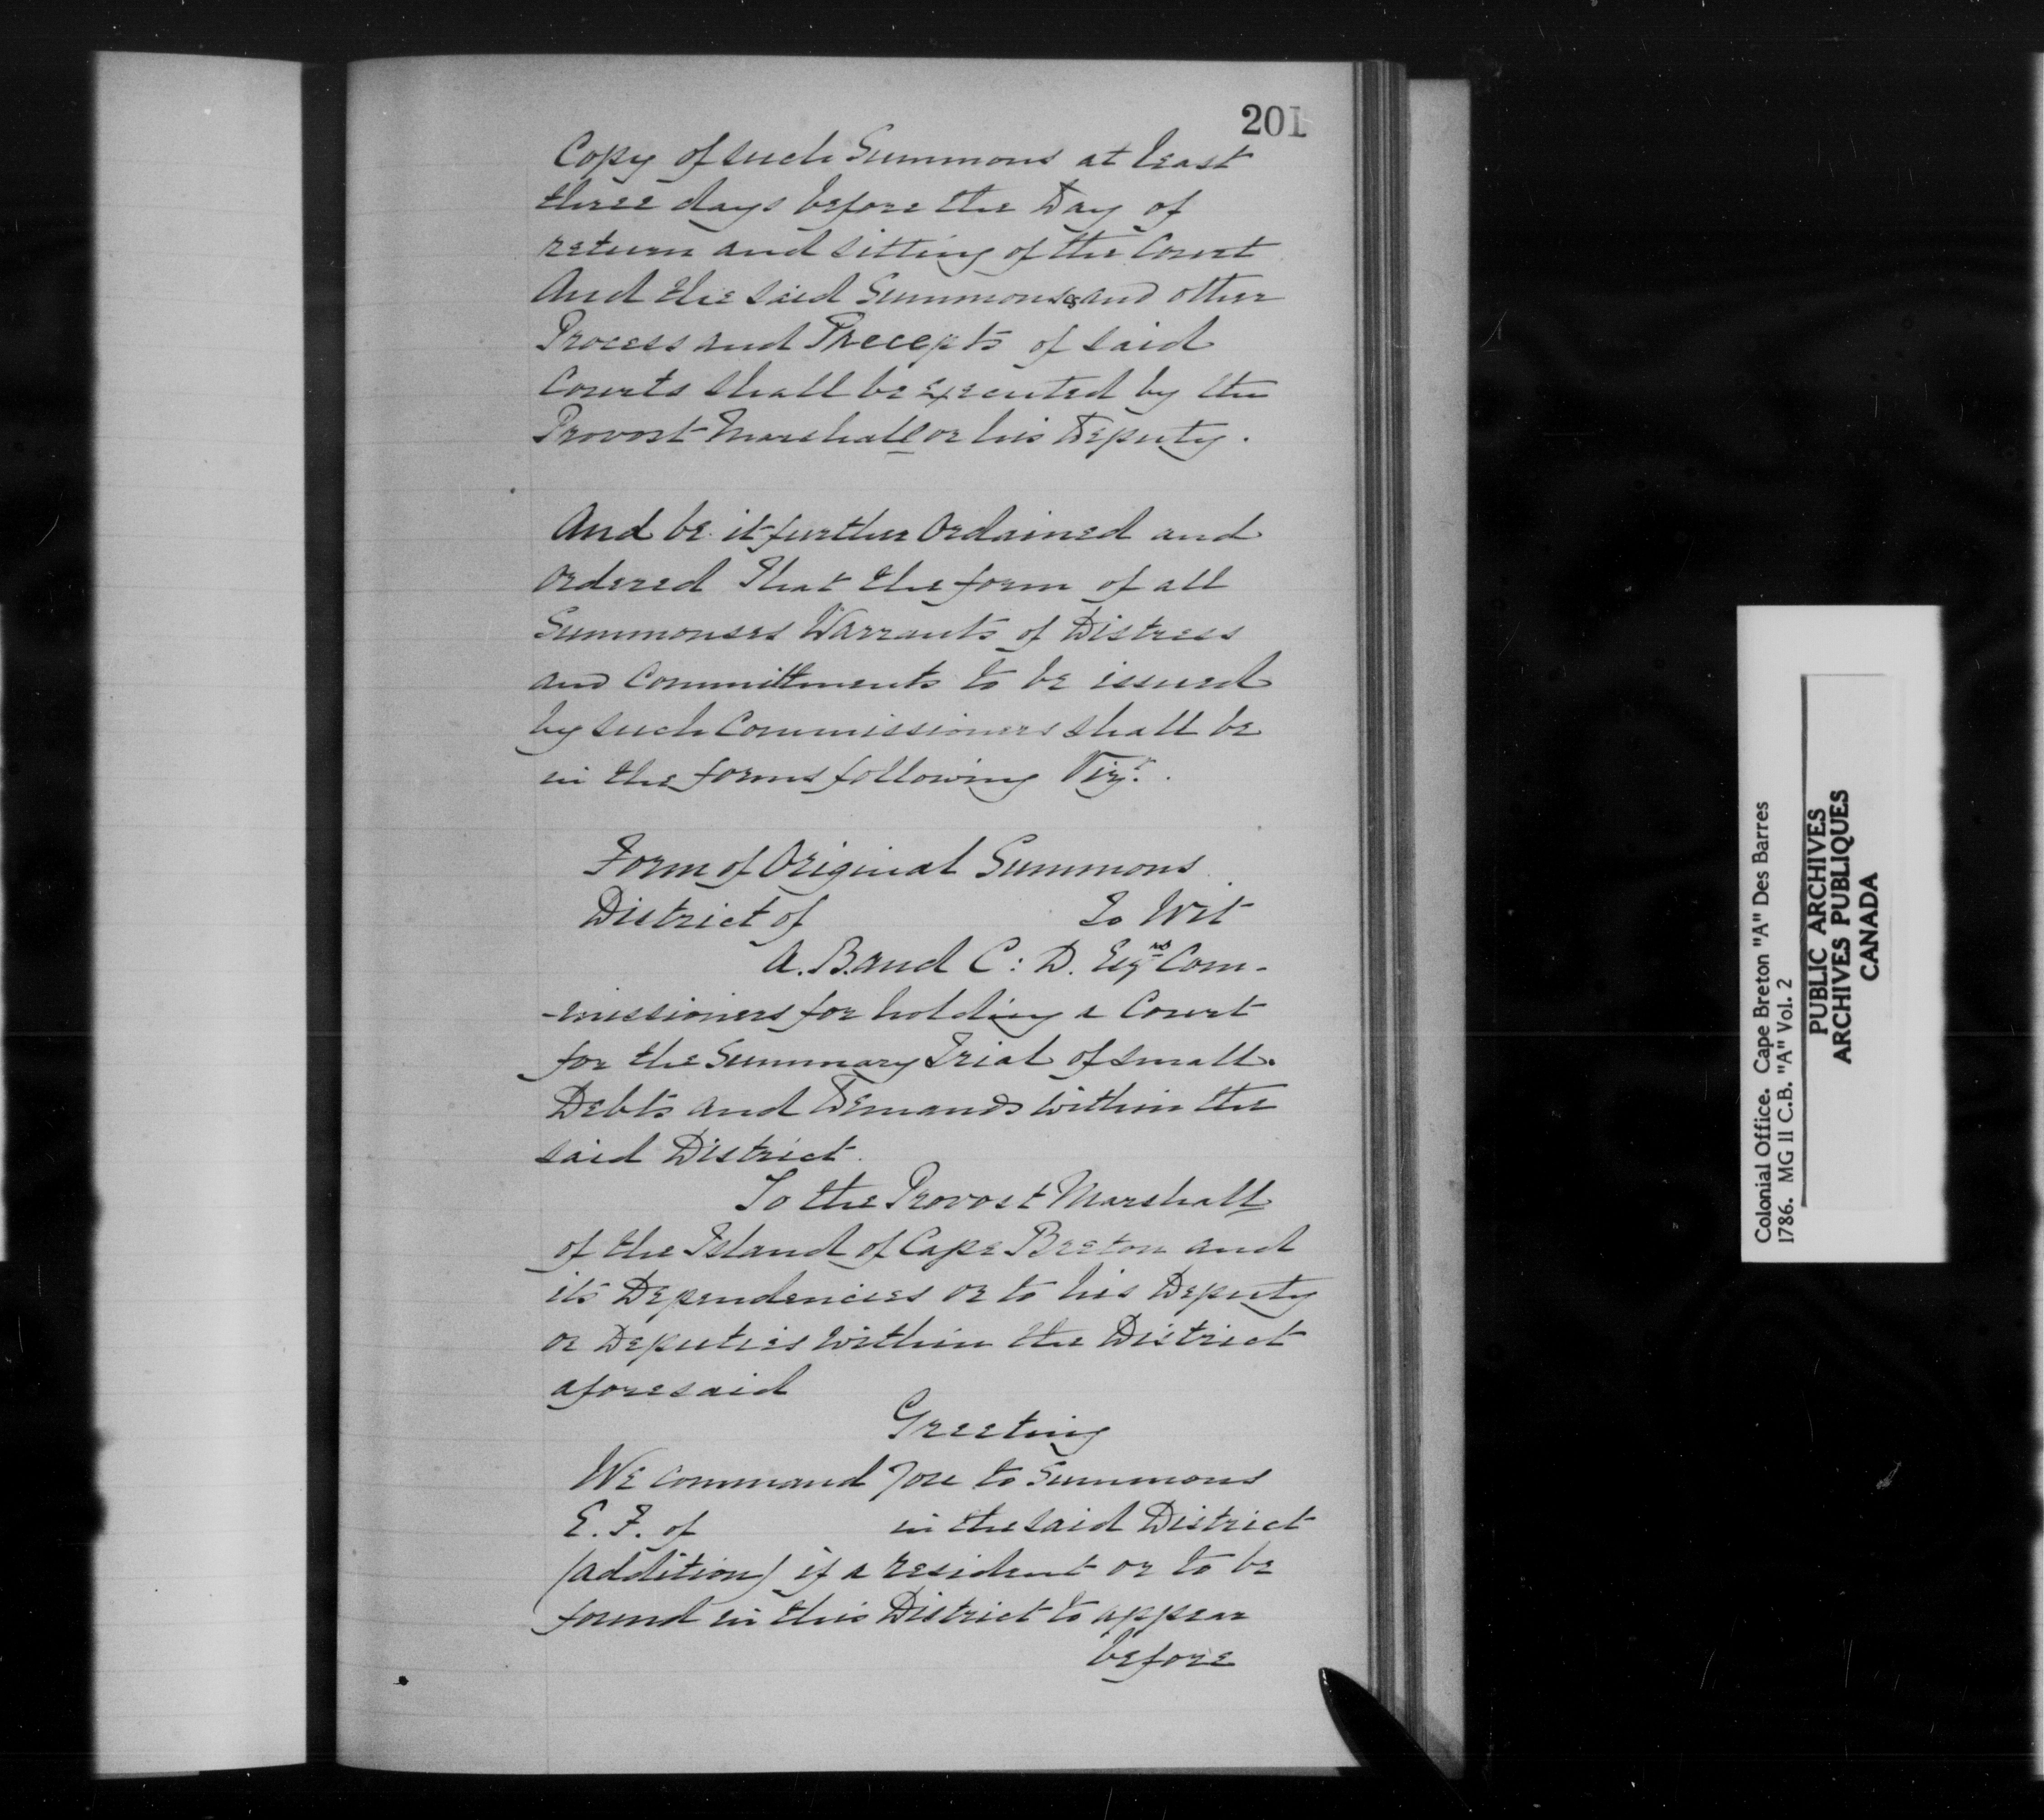 201
Copy of such Summons at least
three days before the Day of
return and sitting of the Court
And the said Summonses and other
Process and Precepts of said
Courts shall be executed by the
Provost Marshall or his Deputy.
And be it further Ordained and
Ordered That the form of all
Summonses Warrants of Distress
and Committments to be issued
by such Commissioners shall be
in the forms following Vizt.
Form of Original Summons
District of To Wit
A. B. and C: D. Esqrs Com-
-missioners for holding a Court
for the Summary Trial of small
Debts and Demands within the
said District.
To the Provost Marshall
of the Island of Cape Breton and
its Dependencies or to his Deputy
or Deputies within the District
aforesaid
Greeting
We command you to Summons
E. F. of in the said District
(addition) if a resident or to be
found in this District to appear
before
Colonial Office. Cape Breton "A" Des Barres
1786. MG 11 C.B. "A" Vol. 2
PUBLIC ARCHIVES
ARCHIVES PUBLIQUES
CANADA